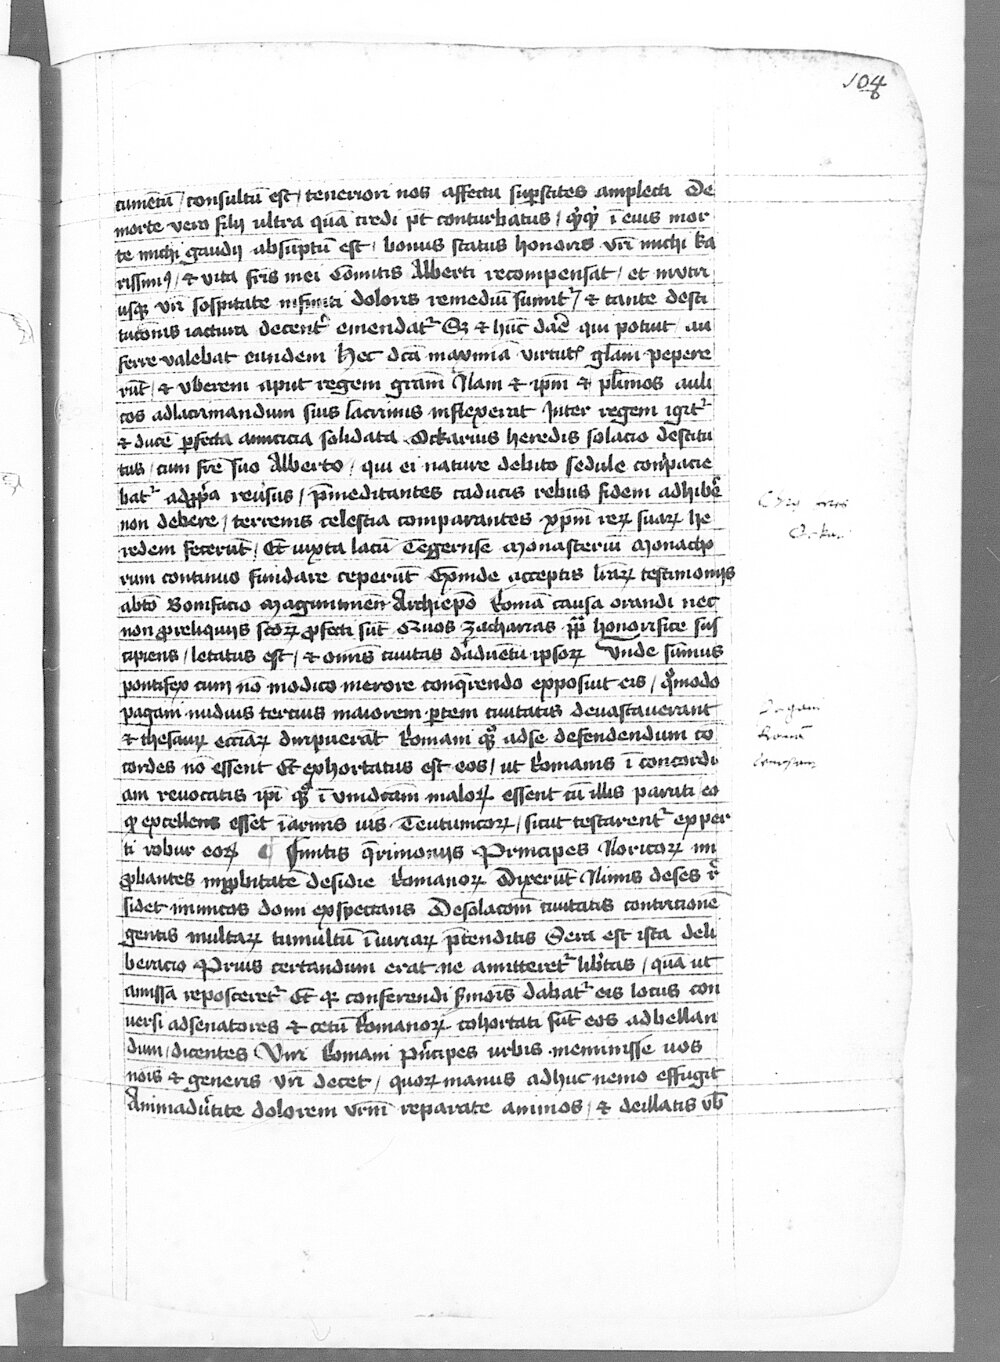 104
cumentū / consultū est / teneriori nos affectu sup̄stites amplecti De
morte vero filij ultra quā credi pt̄ conturbatus / qͥcqͥd ī eius mor
te michi gaudij absūptū est / bonus status honoris vr̄i michi ka
rissimi / & vita fr̄is mei Comitis Alberti recompensat / et
usqꝫ vr̄i sospitate infiniti doloris remediū sumit᷑ / & tante desti
tucōnis iactura decent᷑ emendat᷑ Sꝫ & hūc qui potuit au
ferre valebat eundem Hec dc̄a maximā virtut᷑ gl̄am pepere
rūt / & vberem aput regem grām Nam & ip̄m & pl̄imos auli
cos adlacrimandum suis lacrimis inflexerat Inter regem igit᷑
& ducē ꝑfecta amicicia solidata Ockarius heredis solacio destitu
tus / cum fr̄e suo Alberto / qui ei nature debito sedule conpacie
bat᷑ adpp̄a reūsus / p̄meditantes caducis rebus fidem adhibe᷑
non debere / terrenis celestia comparantes xp̄m reꝝ suaꝝ he
redem fecerūt / Et iuxta lacū Tegernse Monasteriū Monacho
rum continuo fundare ceperūt Exinde acceptis lr̄aꝝ testimonijs
abto Bonifacio Maguntinēn Archiep̄o Romā causa orandi nec
non ꝓreliquijs sc̄oꝝ ꝓfecti sūt Quos Zacharias pp̄a honorifice sus
cipiens / letatus est / & om̄is ciuitas d̓aduentu ipsoꝝ Vnde sūmus
pontifex cum nō modico merore conq̄rendo exposuit eis / qͦmodo
pagani nudius tercius maiorem ꝑtem ciuitatis deuastauerant
& thesauꝝ ecc̄iaꝝ diripuerāt Romani qͣ adse defendendum co
cordes nō essent Et exhortatus est eos / ut Romanis ī concordi
am reuocatis ip̄i qͣ ī vindictam maloꝝ essent cū illis parati / eo
qꝫ excellens esset ī armis vis Teutunicoꝝ / sicut testarent᷑ exper
ti robur eoꝝ ¶ Finitis q̄rimonijs Principes Noricoꝝ im
ꝓbantes impꝓbitatē desidie Romanoꝝ Dixerūt Nimis deses r̓
sidet inimicos domi expectans Desolacōm ciuitatis contricionē
gentis multaꝝ tumultū ī iuriaꝝ p̄tenditis Sera est ista deli
beracio Prius certandum erat ne amitteret᷑ lib̓tas / quā ut
amissā reposceret᷑ Et qꝫ conferendi ẜmōis dabat᷑ eis locus con
uersi adsenatores & cetū Romanoꝝ cohortati sūt eos adbellan
dum / dicentes Viri Romani p̓ncipes urbis meminisse uos
nōis & generis vr̄i decet / quoꝝ manus adhuc nemo effugit
Animadu̓tite dolorem vr̄m reparate animos / & deillatis vb̄